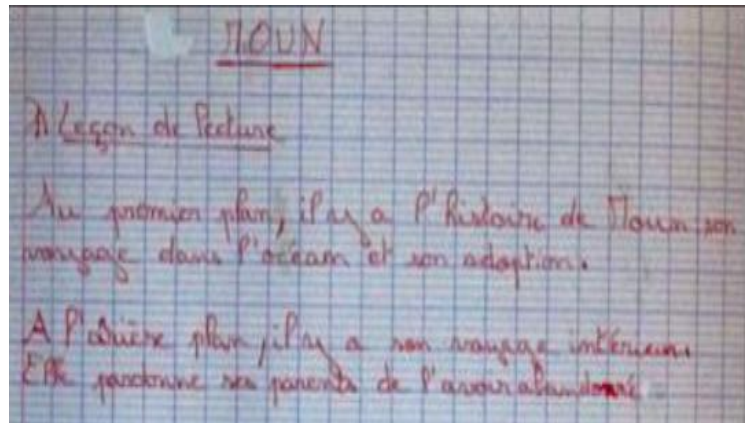 MOUN
1) Leçon de lecture
Au premier plan, il y a l'histoire de Moun son
voyage dans l'océan et son adoption.
A l'arière plan, il y a son voyage intérieur.
Elle pardonne ses parents de l'avoir abandonné.